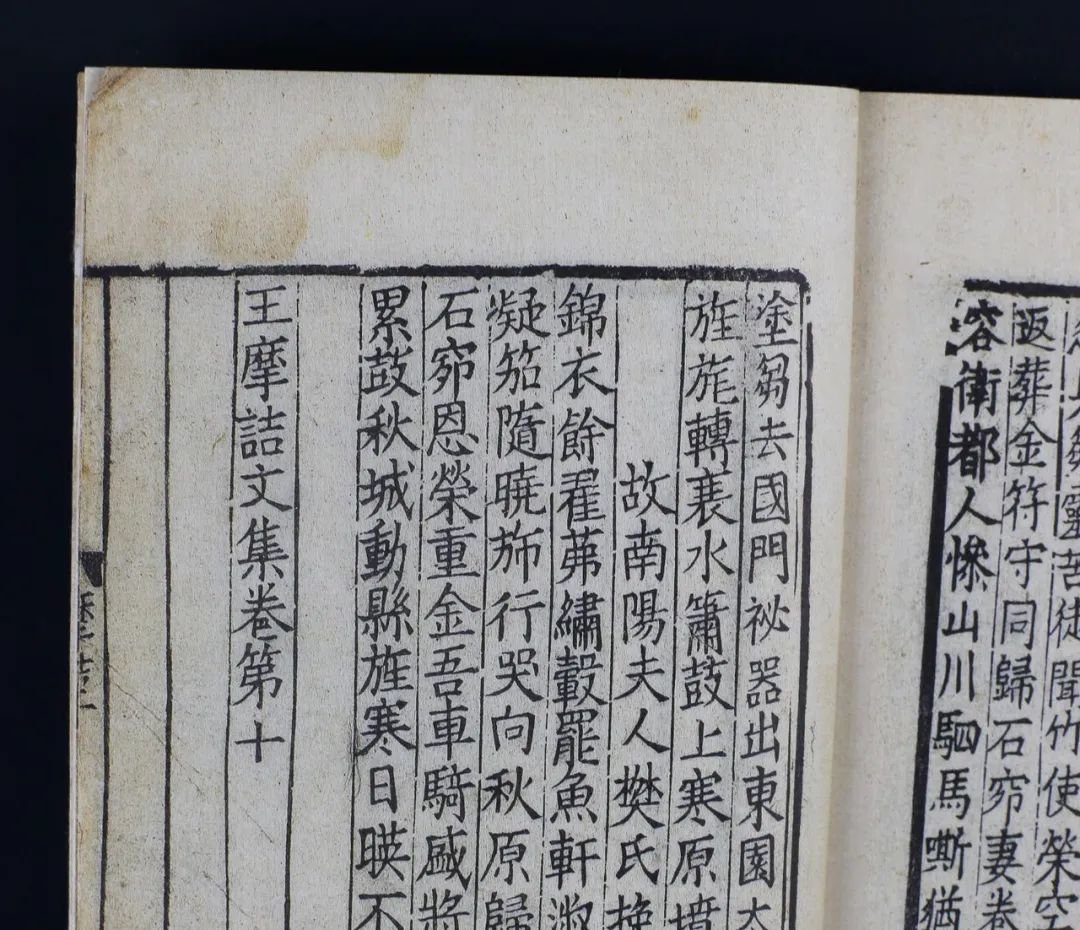 靈苦徒聞竹使榮空
返葬金符守同歸石窌妻卷
容衛都人慘山川駟馬嘶猶
塗芻去國門祕器出東園太
旌旐轉衰水簫鼓上寒原墳
故南陽夫人樊氏挽
錦衣餘翟茀繡轂罷魚軒淑
凝笳隨曉旆行哭向秋原歸
石窌恩榮重金吾車騎盛將
累鼓秋城動縣旌寒日暎不
王摩詰文集卷第十